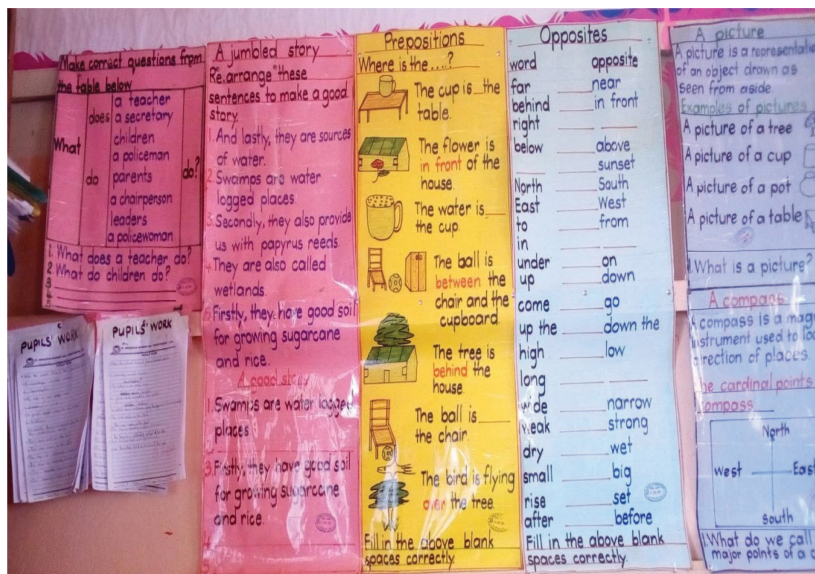 Make correct questions from
the table below
What
does
do
a teacher
a secretary
children
a policeman
parents
a chairperson
leaders
a policewoman
do?
1. What does a teacher do?
2. What do children do?
3
4
5
PUPILS' WORK
PUPILS' WORK
A jumbled story
Re-arrange these
sentences to make a good
story.
1. And lastly, they are sources
of water.
2. Swamps are water
logged places.
3. Secondly, they also provide
us with papyrus reeds.
4. They are also called
wetlands.
5. Firstly, they have good soil
for growing sugarcane
and rice.
A good story
1. Swamps are water logged
places
3. Firstly, they have good soil
for growing sugarcane
and rice.
4.
Prepositions
Where is the ....?
The cup is__the
table.
The flower is
in front of the
house.
The water is___
the cup.
The ball is
between the
chair and the
cupboard.
The tree is
behind the
house.
The ball is____
the chair.
The bird is flying
over the tree
Fill in the above blank
spaces correctly.
Opposites
word opposite
far ____near
behind ____in front
right ____ ____
below ____above
____ sunset
North ____South
East ____West
to ____from
in ____ ____
under ____on
up ____down
come ____go
up the ____down the
high ____low
long ____ ____
wide ____narrow
weak ____strong
dry ____wet
small ____big
rise ____set
after ____before
Fill in the above blank
spaces correctly.
A picture
A picture is a
of an object drawn as
seen from aside.
Examples of pictures
A picture of a tree
A picture of a cup
A picture of a pot
A picture of a table
1. What is a picture?
A compass
A compass is a
instrument used to
direction of places.
The cardinal points
compass
North
West
East
South
1. What do we call
major points of a